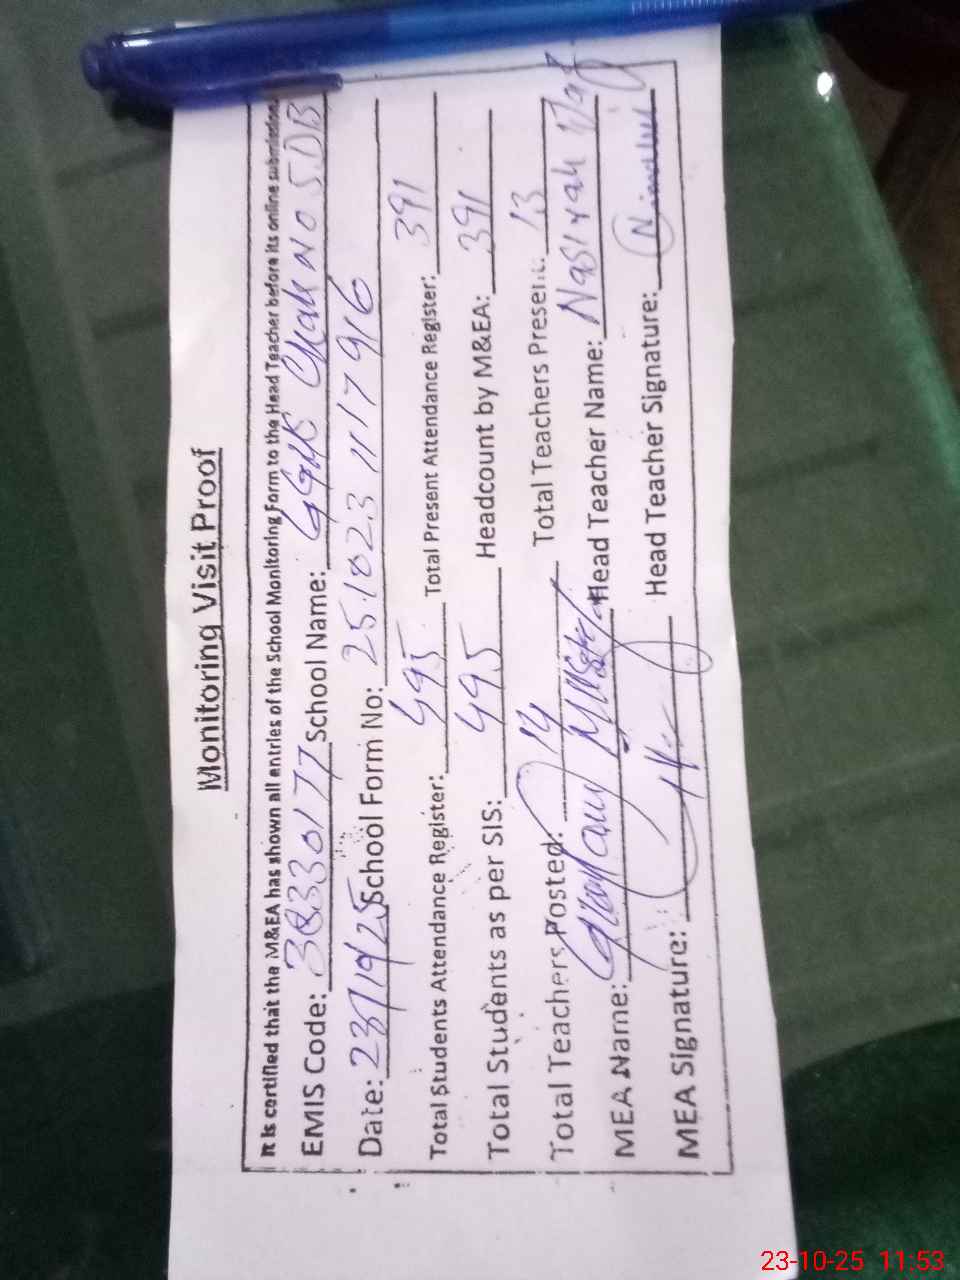 Monitoring Visit Proof
It is certified that the M&EA has shown all entries of the School Monitoring Form to the Head Teacher before its online submission.
EMIS Code: 38330177 School Name: GGHS Chak NO 5 DB
Date: 23/10/25 School Form No: 25.1023 1117 916
Total Students Attendance Register: 495 Total Present Attendance Register: 391
Total Students as per SIS: 495 Headcount by M&EA: 391
Total Teachers Posted: 14 Total Teachers Present: 13
MEA Name: Head Teacher Name:
MEA Signature: Head Teacher Signature:
23-10-25 11:53